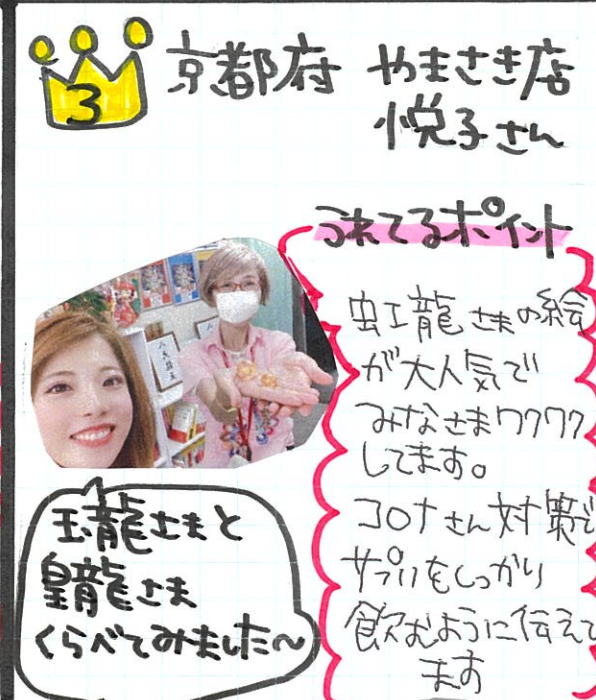 3
京都府 やまさき店
悦子さん
うれてるポイント
虹龍さまの絵
が大人気で
みなさまワクワク
してます。
コロナさん対策で
サプリをしっかり
飲むように伝えて
ます
玉龍さまと
皇龍さま
くらべてみました〜